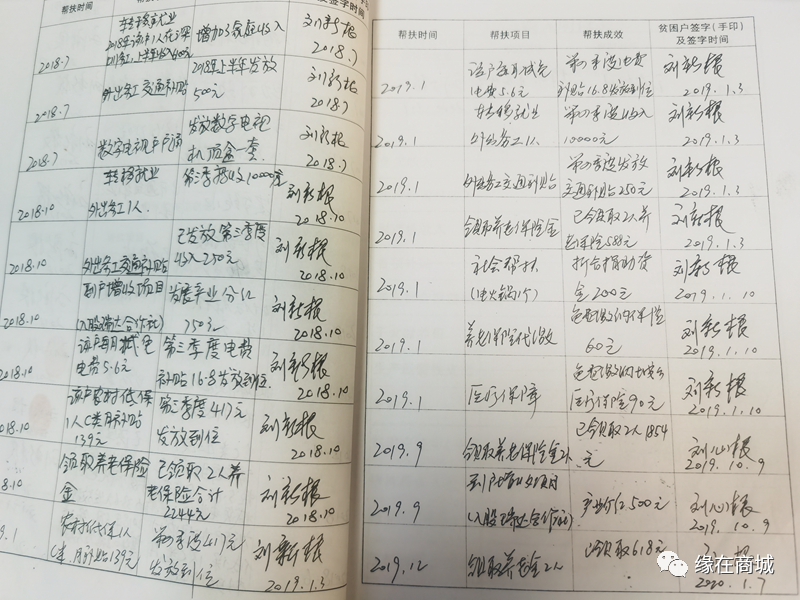 及签字时间
转移就业
增加了家庭收入
刘新根
2018.7
2018.7
外出务工交通补贴
2018年上半年发放
500元
刘新根
2018.7
2018.7
数字电视户户通
发放数字电视
机顶盒一套
刘新根
2018.7
2018.7
转移就业
外出务工1人
第三季度收入10000元
刘新根
2018.10
2018.10
外出务工交通补贴
已发放第三季度
收入250元
刘新根
2018.10
2018.10
到户增收项目
(入股瑞达合作社)
发展产业分红
750元
刘新根
2018.10
2018.10
该户每月减免
电费5.6元
第三季度电费
补贴16.8发放到位
刘新根
2018.10
2018.10
该户农村低保
1人C类月补贴
139元
第三季度417元
发放到位
刘新根
2018.10
18.10
领取养老保险
金
已领取2人养
老保险合计
2244元
刘新根
2018.10
8.10
农村低保1人
C类 月补贴139元
第四季度417元
发放到位
刘新根
2019.1.3
9.1
帮扶时间
帮扶项目
帮扶成效
贫困户签字(手印)
及签字时间
2019.1
该户每月减免
电费5.6元
第四季度电费
补贴16.8发放到位
刘新根
2019.1.3
2019.1
转移就业
外出务工1人
第四季度收入
10000元
刘新根
2019.1.3
2019.1
外出务工交通补贴
第四季度发放
交通补贴250元
刘新根
2019.1.3
2019.1
领取养老保险金
已领取2人养
老保险588元
刘新根
2019.1.3
2019.1
社会帮扶
(电火锅1个)
折合捐助资
金200元
刘新根
2019.1.10
2019.1
养老保险代缴
60元
刘新根
2019.1.10
2019.1
医疗保障
医疗保险90元
刘新根
2019.1.10
2019.9
领取养老保险金2人
已领取2人1854
元
刘心根
2019.10.9
2019.9
到户增收项目
(入股瑞达合作社)
产业分红500元
刘心根
2019.10.9
2019.12
领取养老金2人
已领取618元
2020.1.7
缘在商城